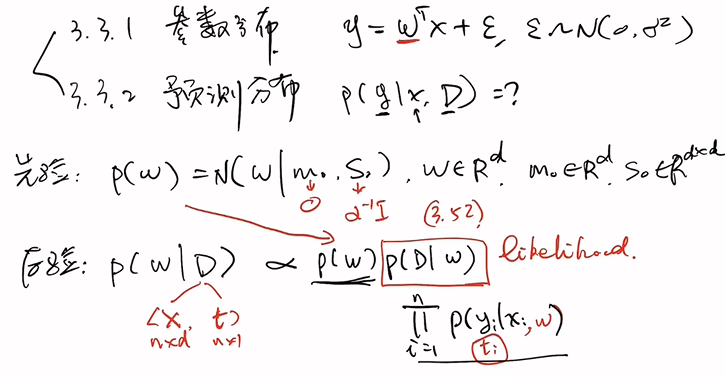 3.3.1 参数分布 y = wᵀx + ε, ε ~ N(0, σ²)
3.3.2 预测分布 p(y|x, D) = ?
先验: p(w) = N(w|m₀, S₀), w∈Rᵈ, m₀∈Rᵈ, S₀∈Rᵈˣᵈ
0 α⁻¹I (3.52)
后验: p(w|D) ∝ p(w) p(D|w) likelihood.
<X, t>
n×d n×1
∏ⁿᵢ₌₁ p(yᵢ|xᵢ, w)
tᵢ